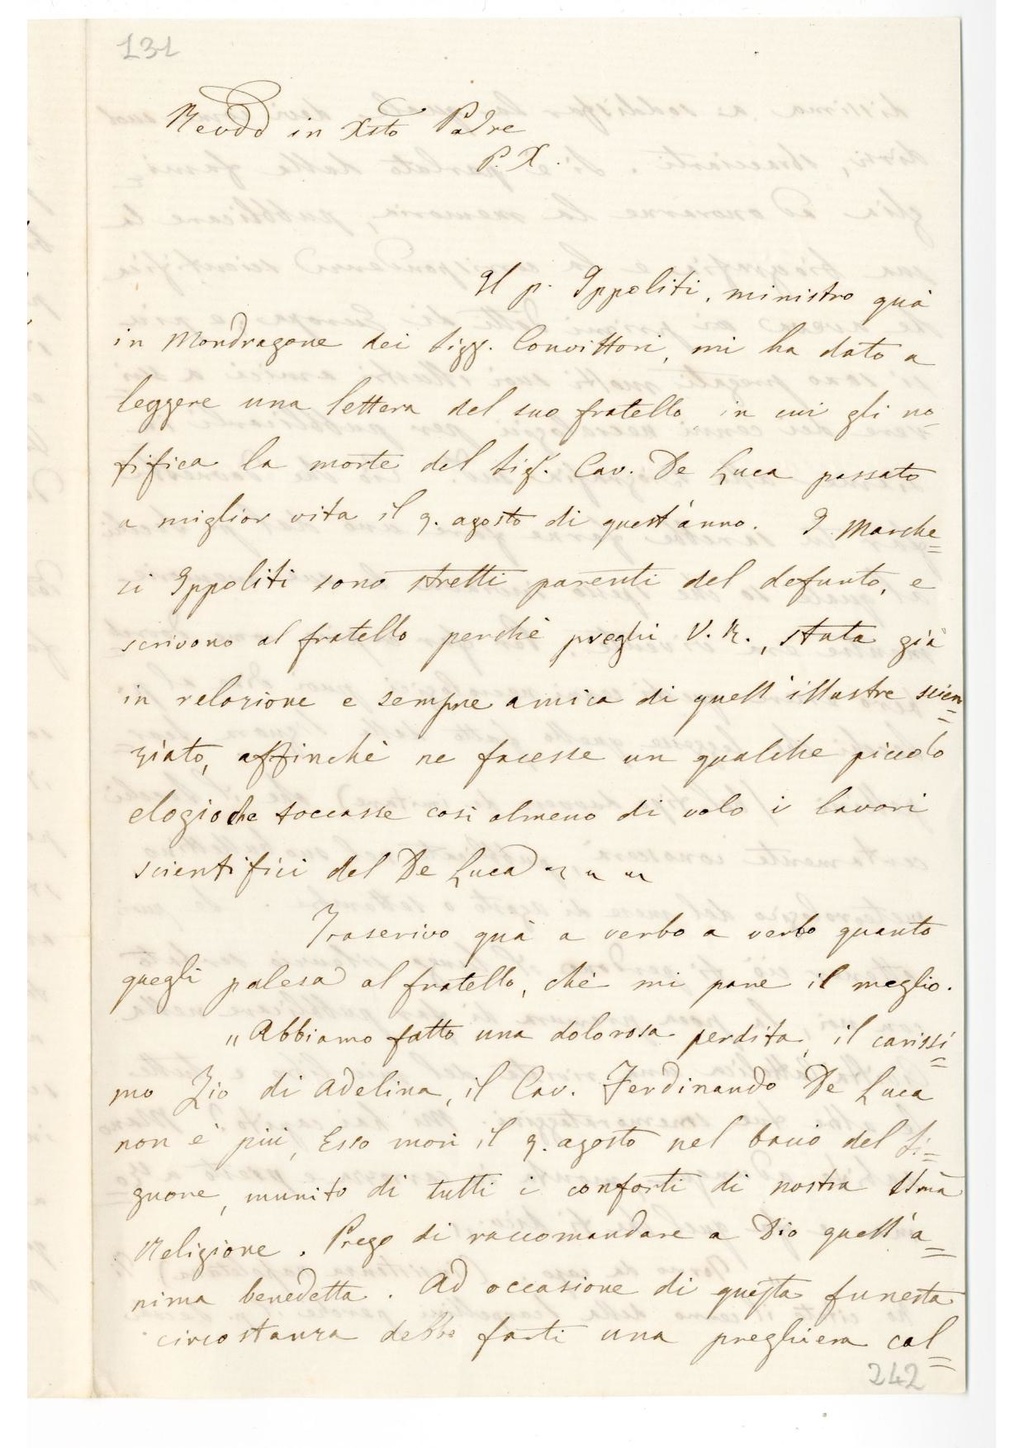 131
Revdo in Xsto Padre
P. X.
Il p. Ippoliti, ministro quà
in Mondragone dei Sigg. Convittori, mi ha dato a
leggere una lettera del suo fratello in cui gli no=
tifica la morte del Sigr. Cav. De Luca passato
a miglior vita il 9. agosto di quest'anno. I Marche=
si Ippoliti sono stretti parenti del defunto, e
scrivono al fratello perchè preghi V. R., stata già
in relazione e sempre amica di quell'illustre scien=
ziato, affinchè ne facesse un qualche piccolo
elogio che toccasse così almeno di volo i lavori
scientifici del De Luca
Trascrivo quà a verbo a verbo quanto
quegli palesa al fratello, chè mi pare il meglio.
"Abbiamo fatto una dolorosa perdita, il carissi=
mo Zio di Adelina, il Cav. Ferdinando De Luca
non è più, Esso morì il 9. agosto nel bacio del Si=
gnore, munito di tutti i conforti di nostra Sma
Religione. Prego di raccomandare a Dio quell'a=
nima benedetta. Ad occasione di questa funesta
circostanza debbo farti una preghiera cal=
242